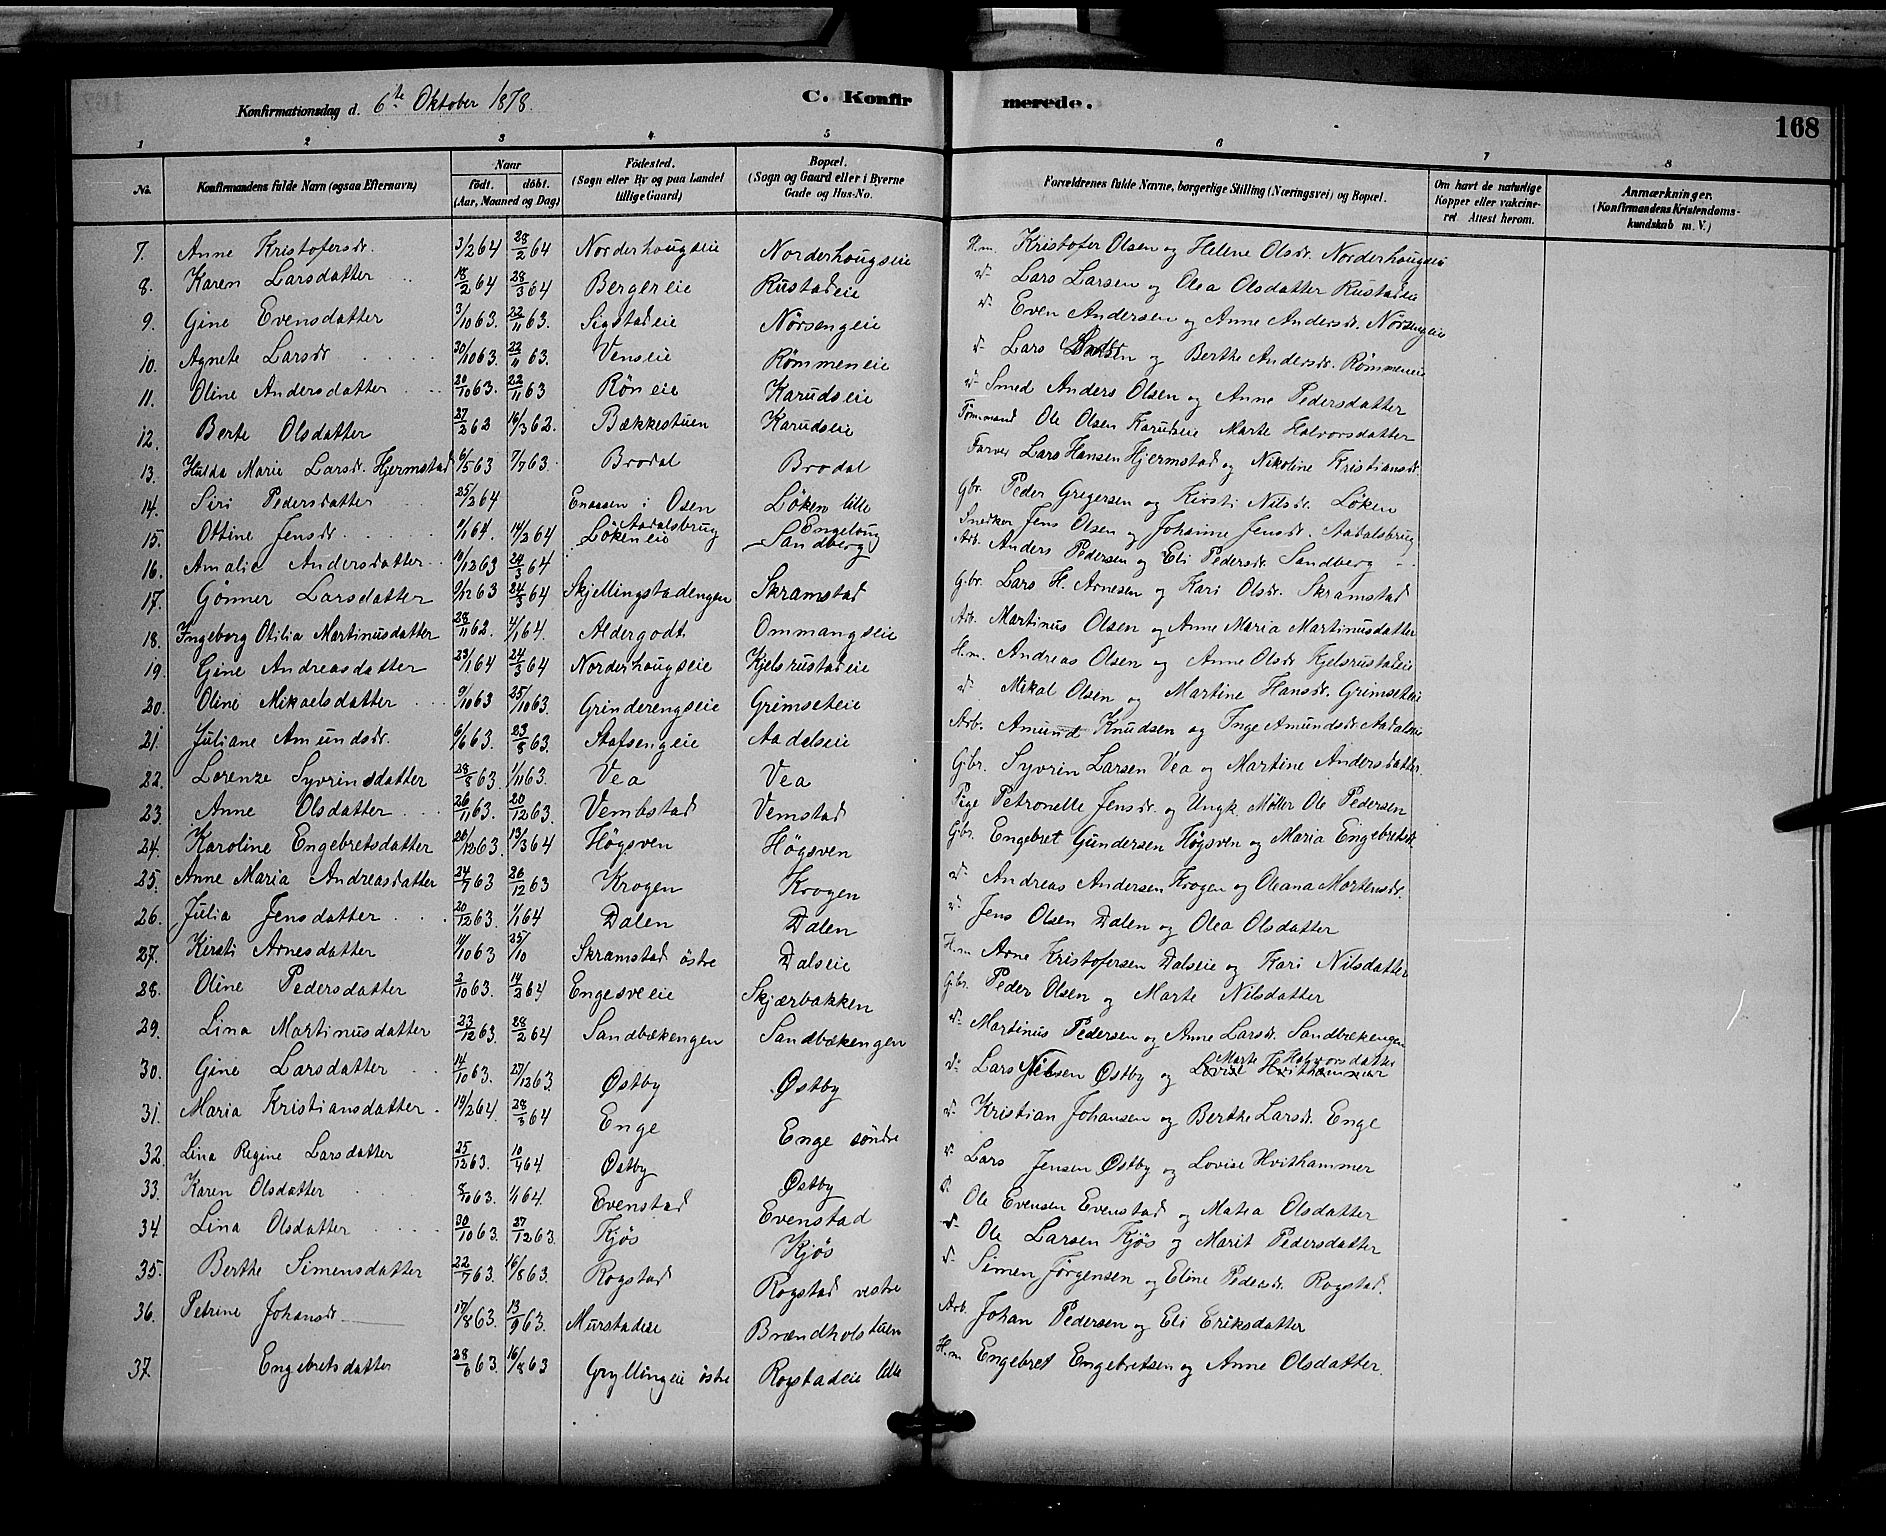 Konfirmationsdag d. 6te Oktober 1878. C. Konfirmerede. 168
1 2 3 4 5 6 7 8
No. Konfirmandens fulde Navn (ogsaa Efternavn) Naar födt. döbt. (Aar, Maaned og Dag) Födested. (Sogn eller By og paa Landet tillige Gaard) Bopæl. (Sogn og Gaard eller i Byerne Gade og Hus-No. Forældrenes fulde Navne, borgerlige Stilling (Næringsvei) og Bopæl. Om havt de naturlige Kopper eller vakcineret Attest herom. Anmærkninger. (Konfirmandens Kristendomskundskab m. V.)
7. Anne Kristofersdr. 3/2 64 28/2 64 Norderhougseie Norderhougseie H.m. Kristofer Olsen og Helene Olsdr. Norderhougseie
8. Karen Larsdatter 18/2 64 28/3 64 Bergereie Rustadeie d- Lars Larsen og Olea Olsdatter Rustadeie
9. Gine Evensdatter 3/10 63. 22/11 63. Sigstadeie Nörsengeie d- Even Andersen og Anne Andersdr. Nörsengeie
10. Agnete Larsdr. 30/10 63. 22/11 63. Venseie Rømmeneie d- Lars Larsen og Berthe Andersdr. Rømmeneie
11. Oline Andersdatter 20/10 63. 22/11 63 Røneie Karudseie d- Smed Anders Olsen og Anne Pedersdatter
12. Berte Olsdatter 27/2 62 16/3 62. Bækkestuen Karudseie Tømmand Ole Olsen Karudseie Marte Halvorsdatter
13. Hulda Marie Larsdr. Hjermstad 6/5 63 7/7 63. Brodal Brodal Farver Lars Hansen Hjermstad og Nikoline Kristiansdr.
14. Siri Pedersdatter 25/2 64 Enaasen i Osen Löken lille Gbr. Peder Gregersen og Kirsti Nilsdr. Löken
15. Ottine Jensdr. 9/1 64. 14/2 64 Aadalsbrug Engeloug Snedker Jens Olsen og Johanne Jensdr. Aadalsbrug
16. Amalie Andersdatter 19/12 63 24/3 64 Lökeneie Sandberg Arb. Anders Pedersen og Eli Pedersdr. Sandberg
17. Gönner Larsdatter 9/12 63 24/3 64 Skjellingstadengen Skramstad Gbr. Lars H. Arnesen og Kari Olsdr. Skramstad
18. Ingeborg Otilia Martinusdatter 28/11 62. 4/1 64. Aldergodt Ommangseie Arb. Martinus Olsen og Anne Maria Martinusdatter
19. Gine Andreasdatter 23/1 64 24/3 64 Norderhougseie Kjelsrustadeie H.m. Andreas Olsen og Anne Olsdr Kjelsrustadeie
20. Oline Mikaelsdatter 9/10 63 25/10 63. Grinderengseie Grimseteie d- Mikal Olsen og Martine Hansdr. Grimseteie
21. Juliane Amundsdr. 6/6 63. 23/8 63. Stafsengeie Aadalseie Arb. Amund Knudsen og Inge Amundsdr Aadalseie
22. Lorenze Syvrinsdatter 28/8 63. 1/11 63. Vea Vea Gbr. Syvrin Larsen Vea og Martine Andersdatter.
23. Anne Olsdatter 26/11 63. 20/12 63. Vembstad Vemstad Pige Petronelle Jensdr. og Ungk. Møller Ole Pedersen
24. Karoline Engebretsdatter 20/12 63. 13/3 64 Högsven Högsven Gbr. Engebret Gundersen Högsven og Maria Engebretsdr.
25. Anne Maria Andreasdatter 24/7 63 26/12 63 Krogen Krogen d- Andreas Andersen Krogen og Oleana Mortensdr.
26. Julia Jensdatter 20/12 63. 1/1 64 Dalen Dalen d- Jens Olsen Dalen og Olea Olsdatter
27. Kirsti Arnesdatter 11/10 63 25/10 Skramstad östre Dalseie H.m Arne Kristofersen Dalseie og Kari Nilsdatter
28. Oline Pedersdatter 2/10 63. 14/2 64 Engesveie Skjærbakken Gbr. Peder Olsen og Marte Nilsdatter
29. Lina Martinusdatter 23/12 63. 28/2 64 Sandbækengen Sandbækengen d- Martinus Pedersen og Anne Larsdr. Sandbækengen
30. Gine Larsdatter 14/10 63. 27/12 63 Østby Østby d- Lars Nilsen Østby og Lovise Hvithammer Marte Halvorsdatter
31. Maria Kristiansdatter 19/2 64. 28/3 64 Enge Enge söndre d- Kristian Johansen og Berthe Larsdr. Enge
32. Lina Regine Larsdatter 25/12 63. 10/4 64 Østby Østby d- Lars Jensen Østby og Lovise Hvithammer
33. Karen Olsdatter 8/10 63. 1/1 64 Evenstad Evenstad d- Ole Evensen Evenstad og Matea Olsdatter
34 Lina Olsdatter 30/10 63. 27/12 63. Kjøs Kjøs d- Ole Larsen Kjøs og Marit Pedersdatter
35. Berthe Simensdatter 22/7 63. 16/8 63. Rogstad Rogstad vestre d- Simen Jörgensen og Eline Pedersdr. Rogstad.
36. Petrine Johansdr. 17/8 63. 13/9 63. Murstadeie Brændholstuen Arb. Johan Pedersen og Eli Eriksdatter
37. Engebretsdatter 28/6 63. 16/8 63 Gryllingeie östre Rogstadeie lille H.m Engebret Engebretsen og Anne Olsdatter.